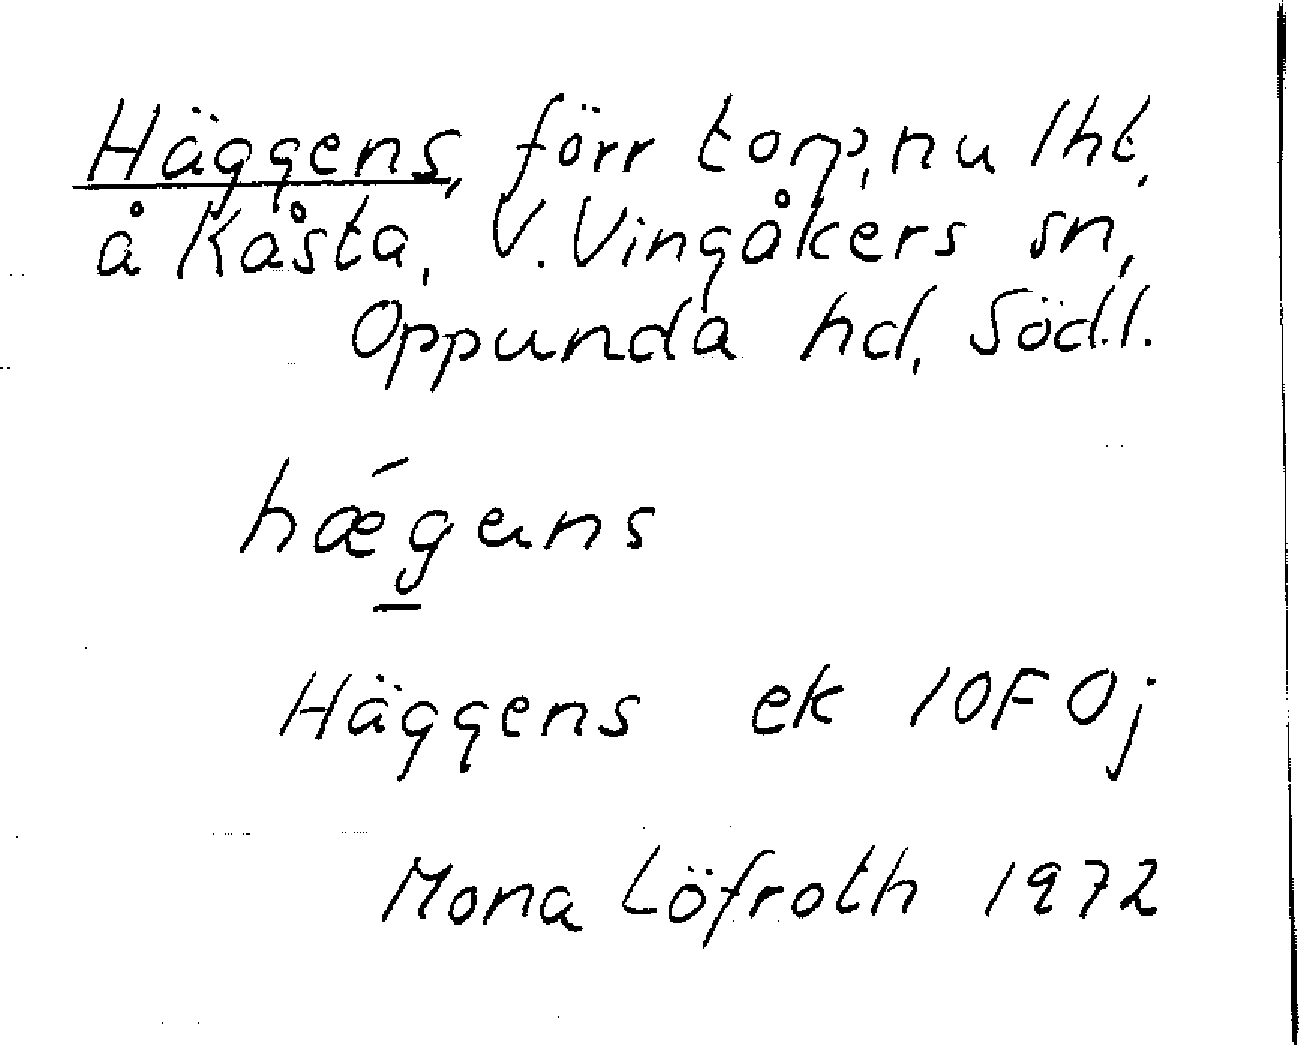 Häggens, förr torp, nu lht,
å Kåsta, V. Vingåkers sn,
Oppunda hd, Södl.
hǽgens
Häggens ek 10F 0j
Mona Löfroth 1972